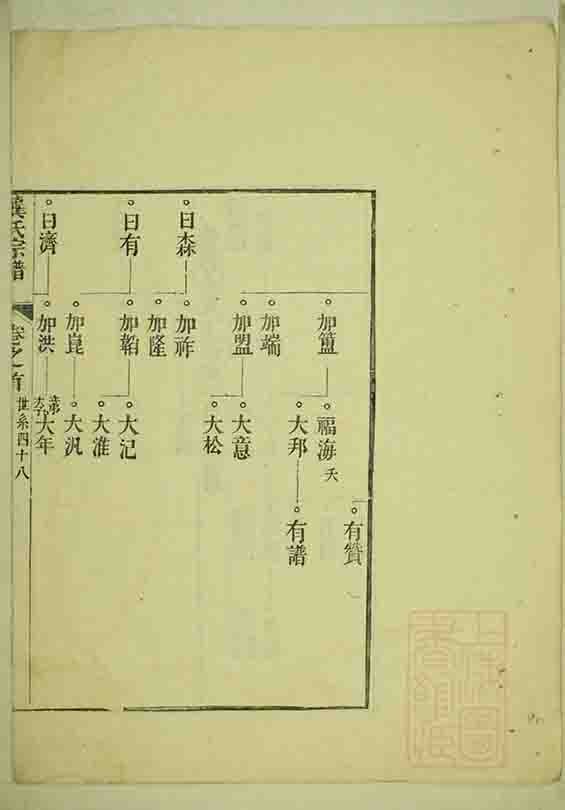 有贊
加簠
福海 夭
大邦
有譜
加端
加盟
大意
大松
曰森
加祚
加隆
曰有
加韜
大氾
大淮
加崑
大汎
曰濟
加洪
大年
龔氏宗譜
卷之首
世系四十八
上海圖書館藏